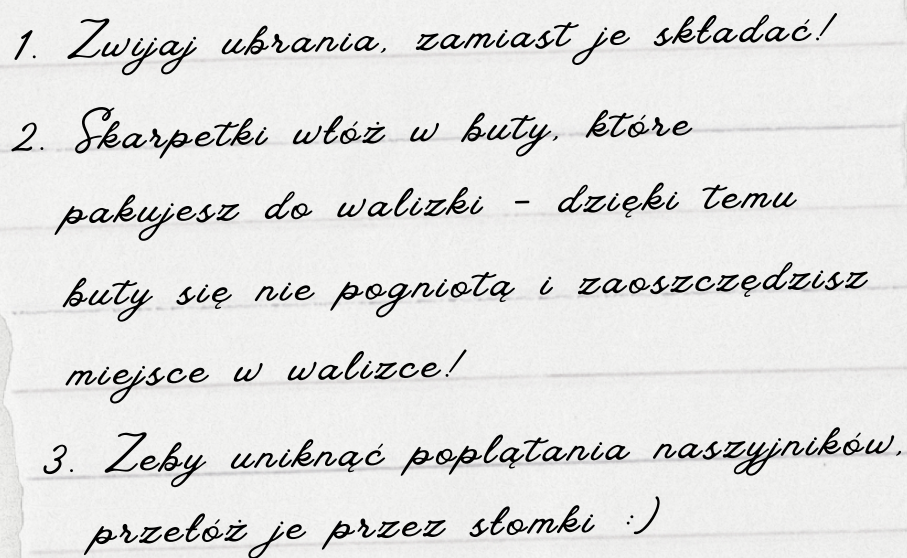 1. Zwijaj ubrania, zamiast je składać!
2. Skarpetki włóż w buty, które
pakujesz do walizki - dzięki temu
buty się nie pogniotą i zaoszczędzisz
miejsce w walizce!
3. Zeby uniknąć poplątania naszyjników,
przełóż je przez słomki :)